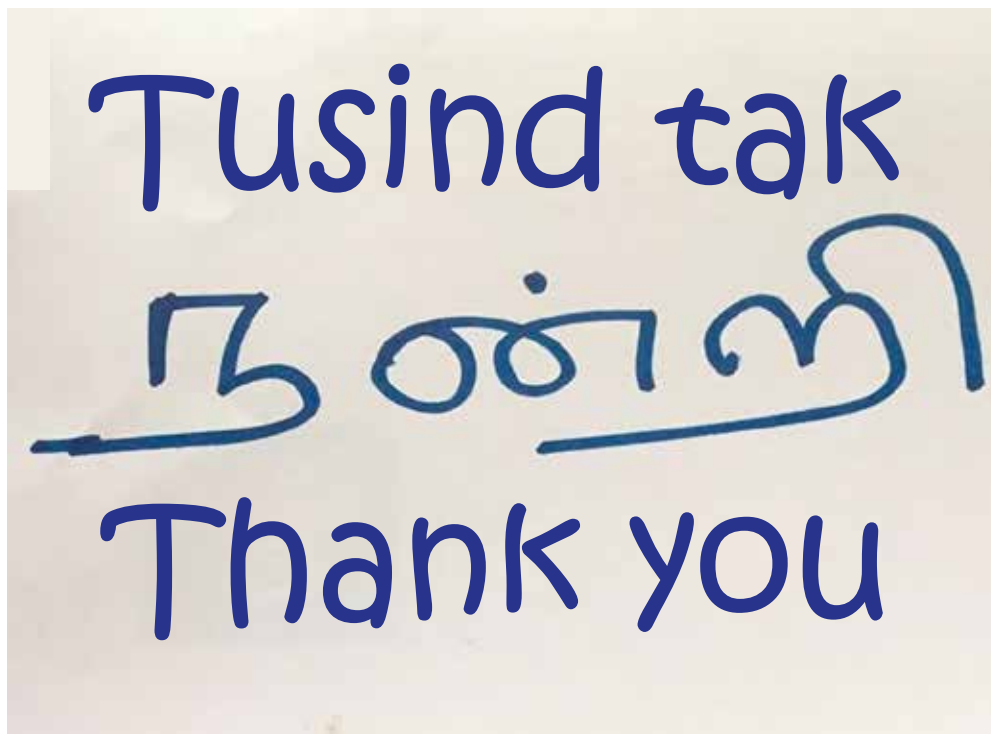 Tusind tak
நன்றி
Thank you